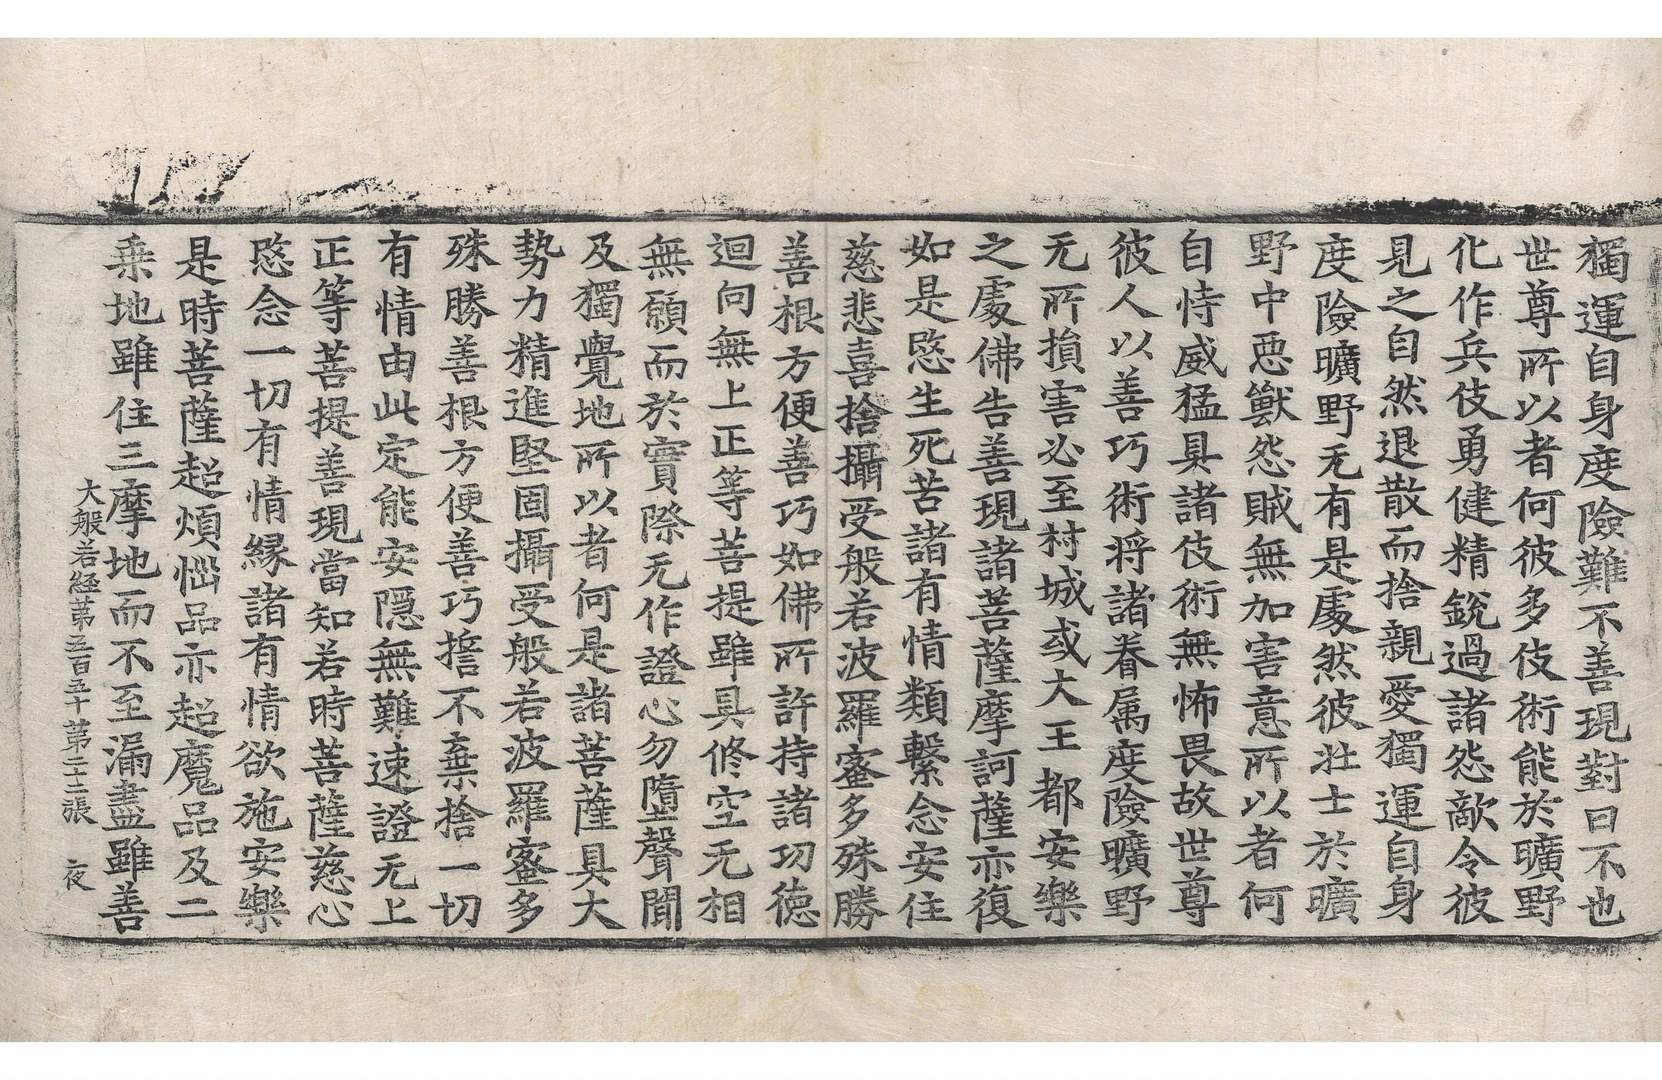 獨運自身度險難不善現對曰不也
世尊所以者何彼多伎術能於曠野
化作兵伎勇健精銳過諸怨敵令彼
見之自然退散而捨親愛獨運自身
度險曠野无有是處然彼壯士於曠
野中惡獸怨賊無加害意所以者何
自恃威猛具諸伎術無怖畏故世尊
彼人以善巧術將諸眷属度險曠野
无所損害必至村城或大王都安樂
之處佛告善現諸菩薩摩訶薩亦復
如是愍生死苦諸有情類繫念安住
慈悲喜捨攝受般若波羅蜜多殊勝
善根方便善巧如佛所許持諸功徳
迴向無上正等菩提雖具修空无相
無願而於實際无作證心勿墮聲聞
及獨覺地所以者何是諸菩薩具大
勢力精進堅固攝受般若波羅蜜多
殊勝善根方便善巧誓不棄捨一切
有情由此定能安隱無難速證无上
正等菩提善現當知若時菩薩慈心
愍念一切有情緣諸有情欲施安樂
是時菩薩超煩惱品亦超魔品及二
乗地雖住三摩地而不至漏盡雖善
大般若經第五百五十 第二十二張 夜